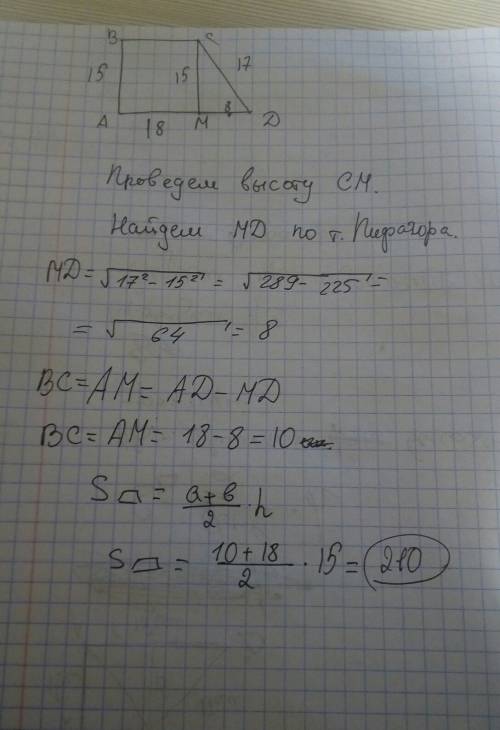 B C
15 15 17
8
A 18 M D
Проведем высоту СМ.
Найдем MD по т. Пифагора.
MD = √17² - 15² = √289 - 225 =
= √64 = 8
BC = AM = AD - MD
BC = AM = 18 - 8 = 10
S⏢ = a+b/2 · h
S⏢ = 10+18/2 · 15 = 210